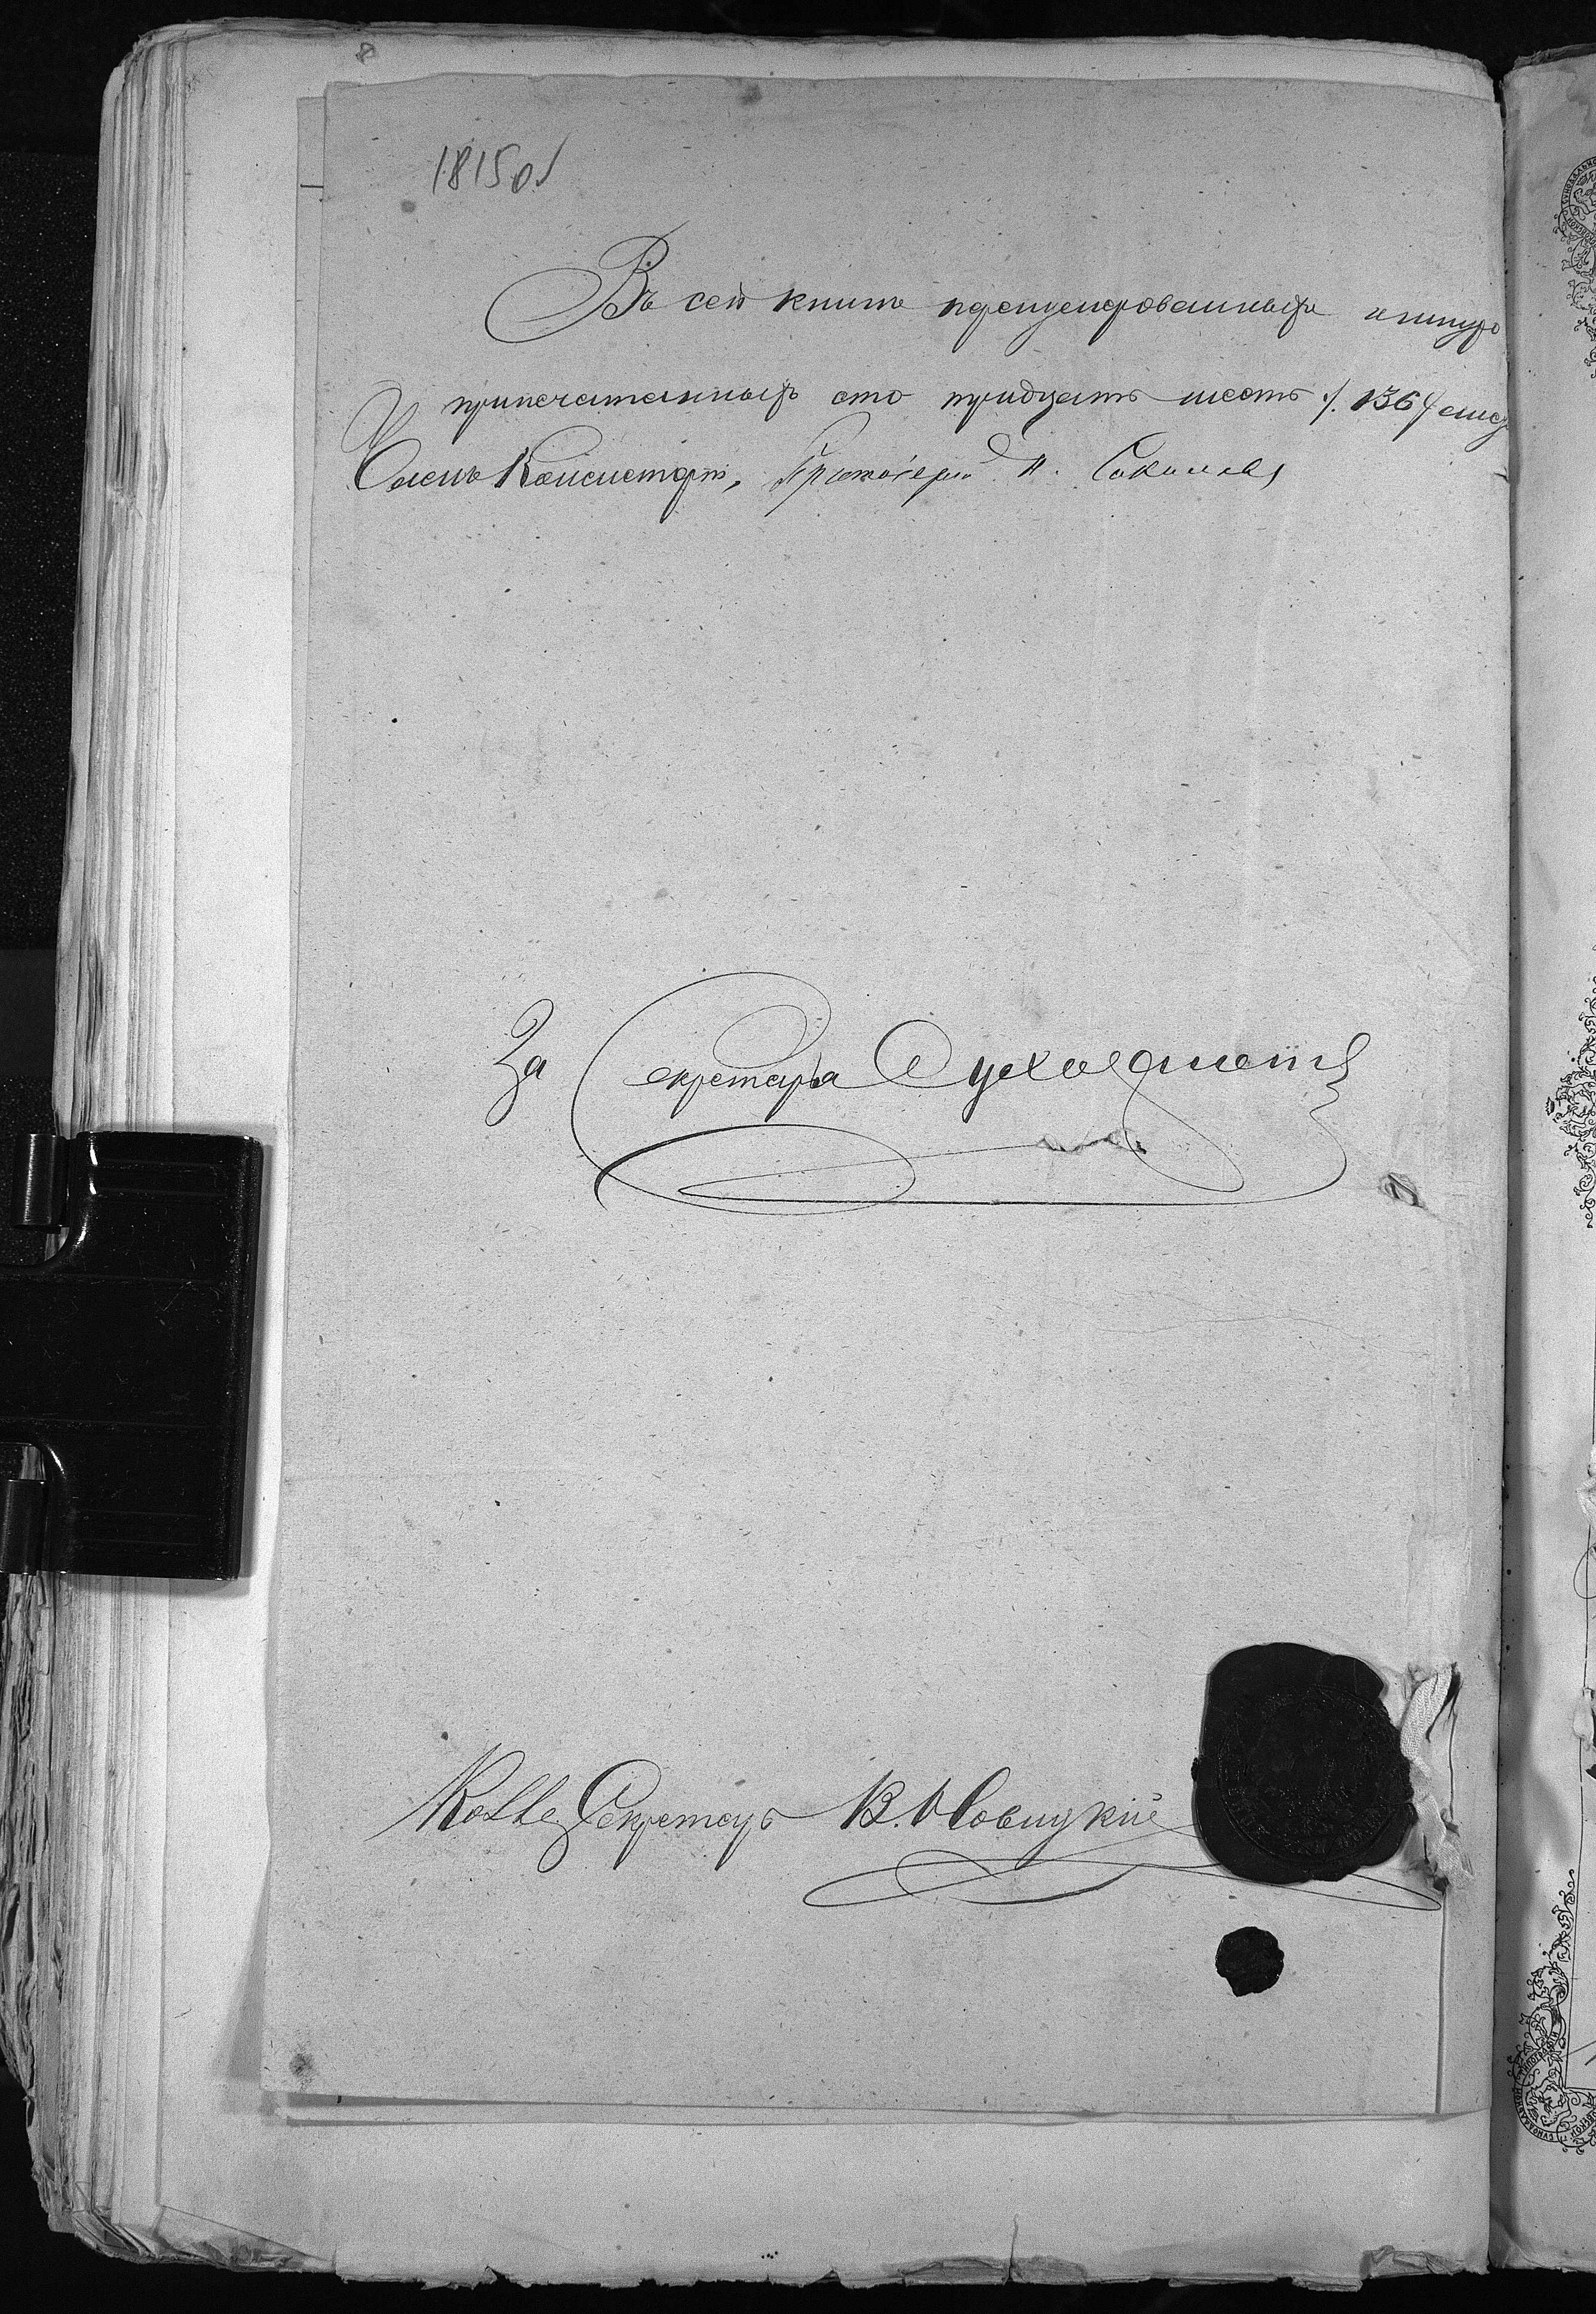 1815 об
Въ сей книге пренумерованныхъ и шнуро
припечатанныхъ сто тридцать шесть /. 136
Членъ Консисторіи, Протоіерей П. Соколовъ
За Секретаря
Колле Секретарь В. Новицкій